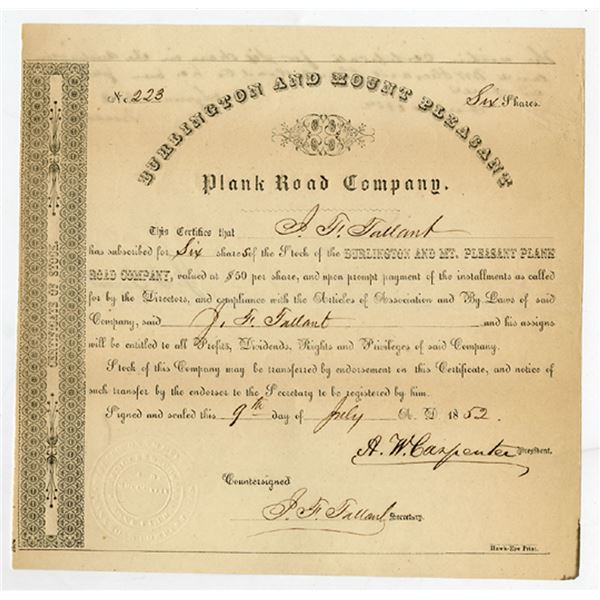 No. 223
Six Shares.
BURLINGTON AND MOUNT PLEASANT
Plank Road Company.
This Certifies that J. F. Tallant
has subscribed for Six shares of the Stock of the BURLINGTON AND MT. PLEASANT PLANK
ROAD COMPANY, valued at $50 per share, and upon prompt payment of the installments as called
for by the Directors, and compliance with the Articles of Association and By-Laws of said
Company, said J. F. Tallant and his assigns
will be entitled to all Profits, Dividends, Rights and Privileges of said Company.
Stock of this Company may be transferred by endorsement on this Certificate, and notice of
such transfer by the endorser to the Secretary to be registered by him.
Signed and sealed this 9th day of July A. D. 1852.
A. W. Carpenter President.
Countersigned
J. F. Tallant Secretary.
Hawk-Eye Print.
CERTIFICATE OF STOCK.